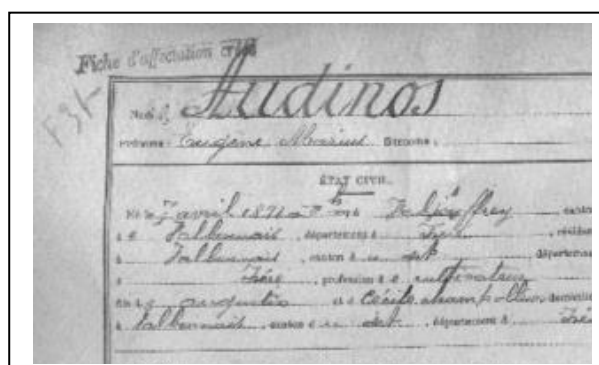 Fiche d'affectation créée
F31-
Nom : Audinos
Prénoms : Eugène Marius Surnoms :
ÉTAT CIVIL.
Né le 7 avril 1891 à Valjouffrey, canton
d e Valbonnais, département d Isère, résidant
à Valbonnais, canton d u dit, département
d Isère, profession d e cultivateur
fils d' augustin et d e Cécile champollion domiciliés
à Valbonnais, canton d u dit, département d Isère